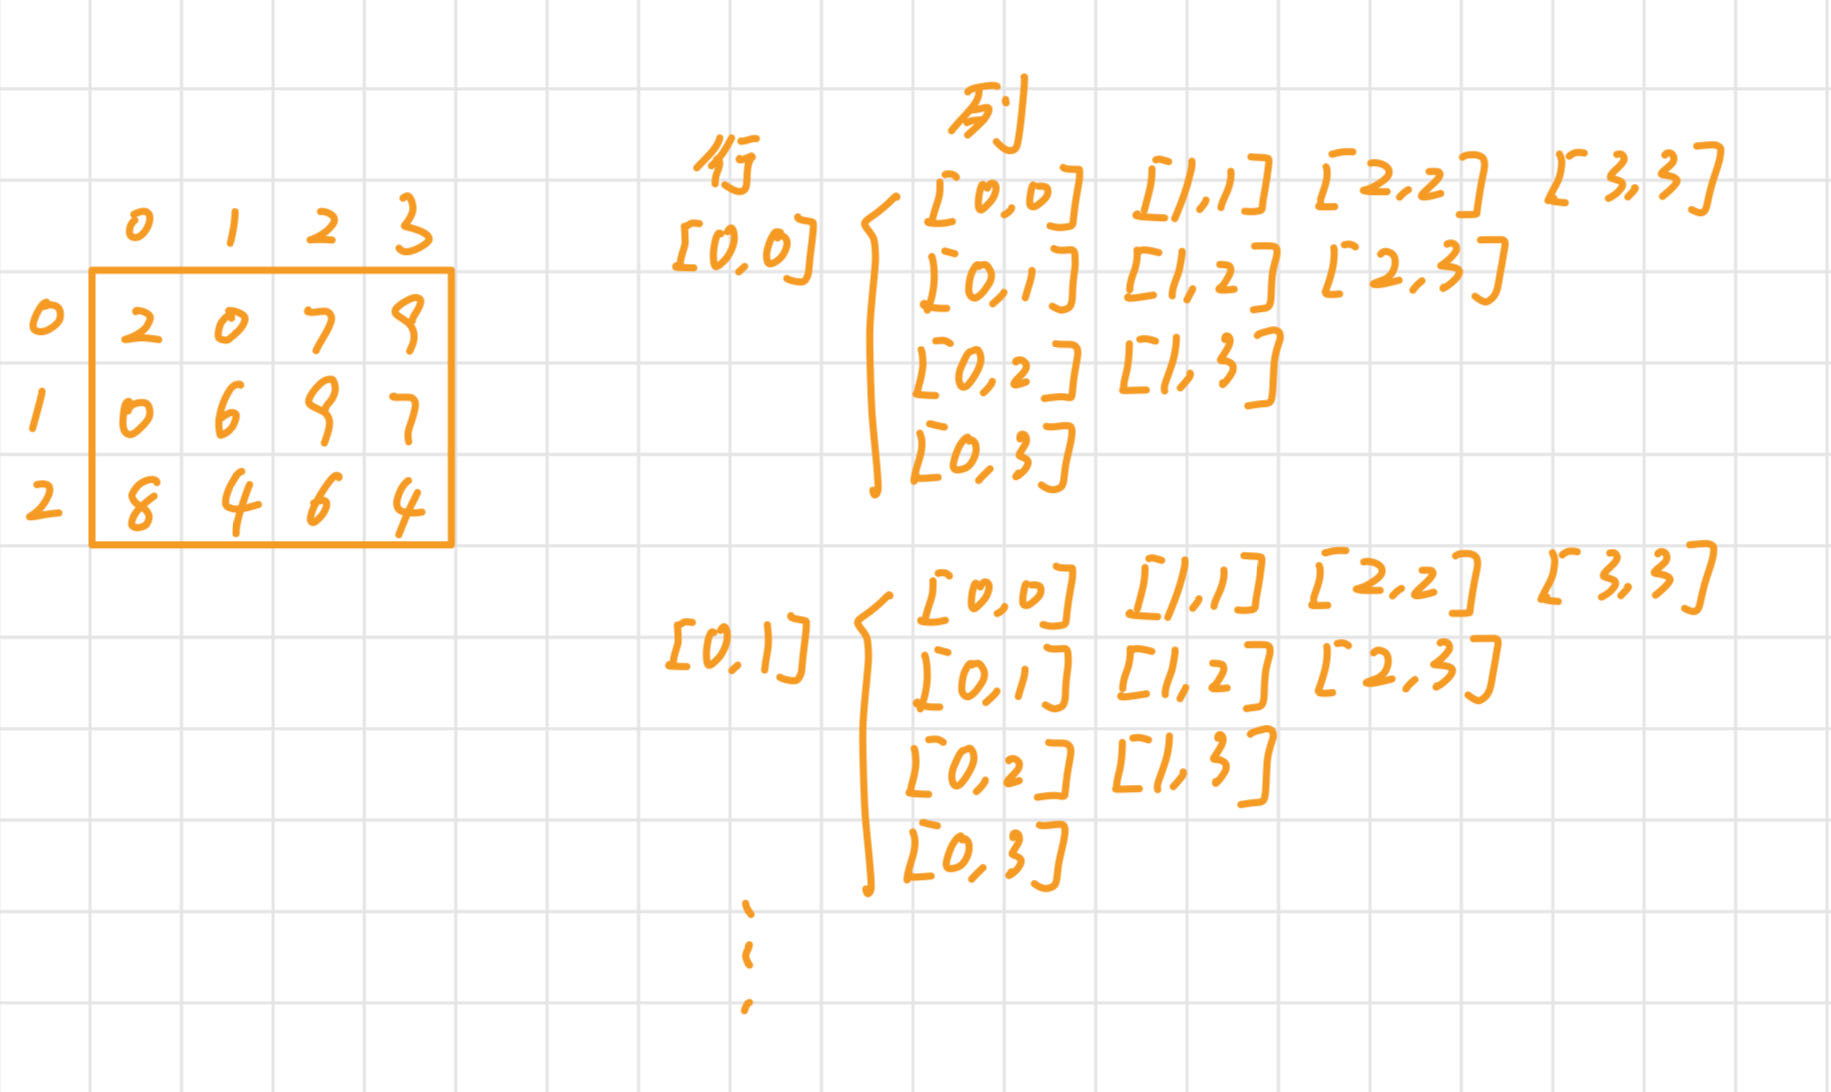 0 1 2 3
0 2 0 7 9
1 0 6 9 7
2 8 4 6 4
行 列
[0,0] [0,0] [1,1] [2,2] [3,3]
[0,1] [1,2] [2,3]
[0,2] [1,3]
[0,3]
[0,1] [0,0] [1,1] [2,2] [3,3]
[0,1] [1,2] [2,3]
[0,2] [1,3]
[0,3]